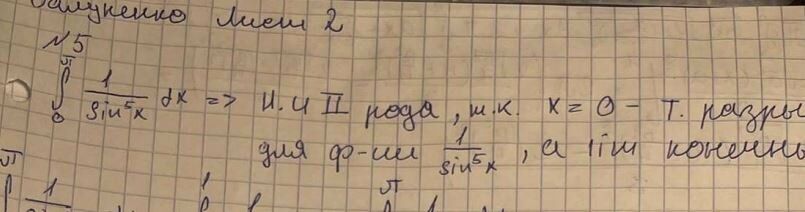 Лист 2
№5
∫₀^π 1/sin⁵x dx => Н.И II рода, т.к. x = 0 - т. разры
для ф-ии 1/sin⁵x, а lim конечны
π 1 π
∫ 1